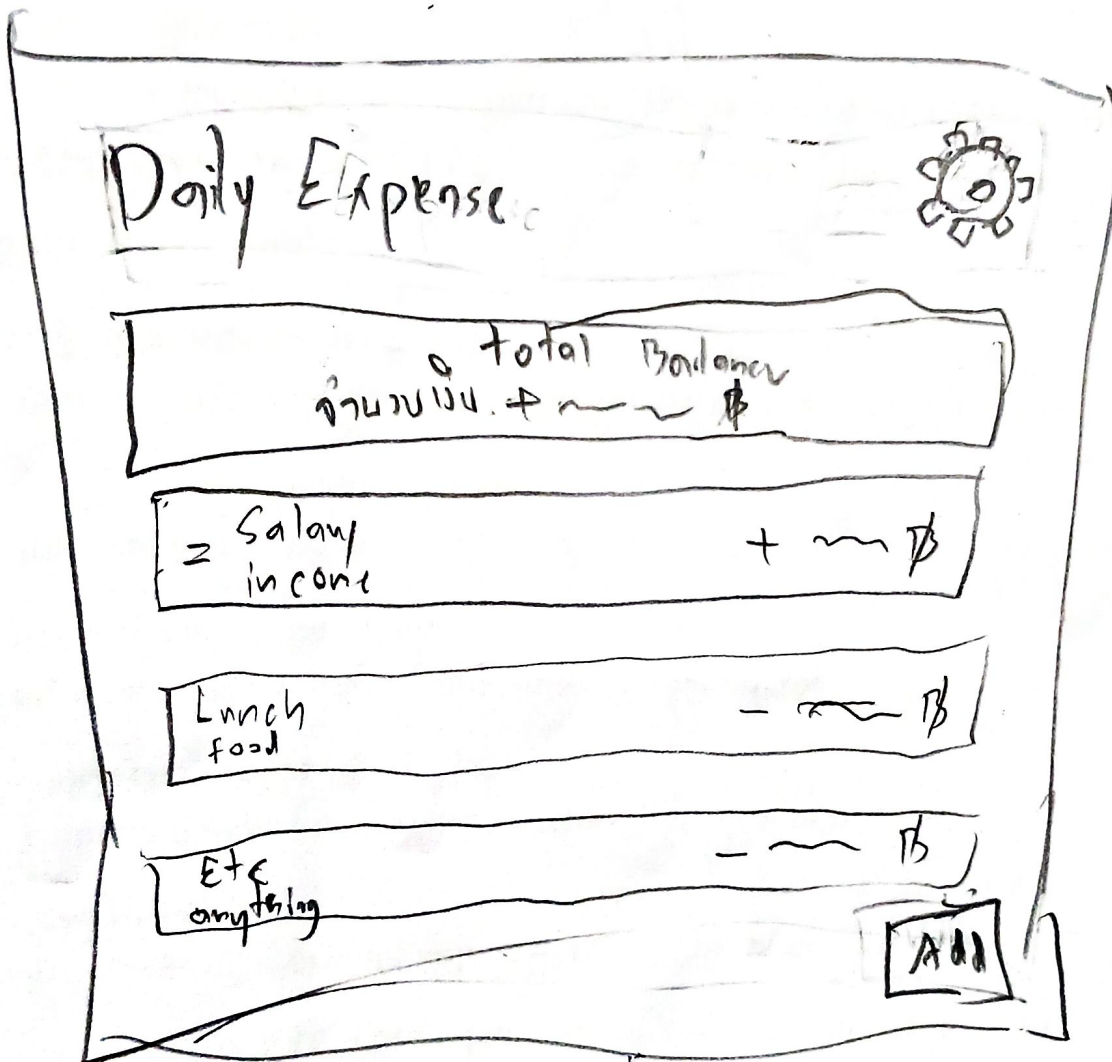 Daily Expense
total Balance
จำนวนเงิน + ฿
= Salary + ฿
income
Lunch - ฿
food
Etc - ฿
anything
Add